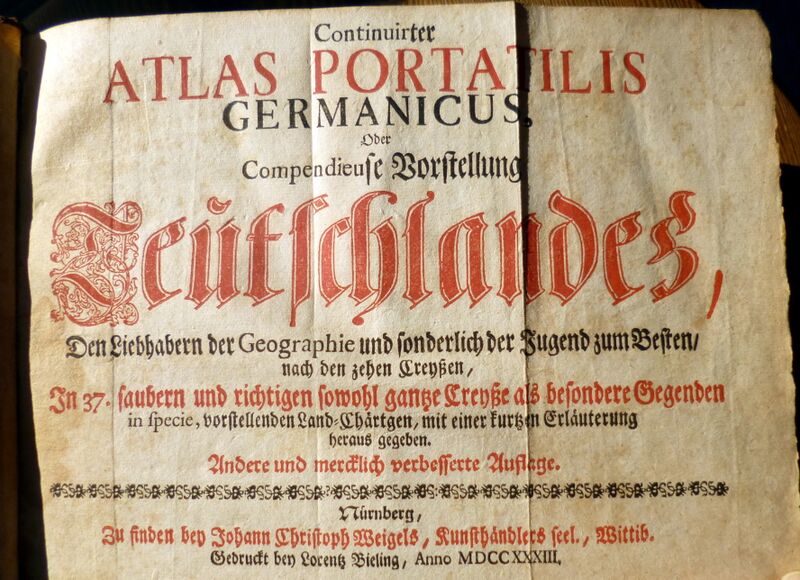 Continuirter
ATLAS PORTATILIS
GERMANICUS,
Oder
Compendieuse Vorstellung
Teŭtschlandes,
Den Liebhabern der Geographie und sonderlich der Jugend zum Besten/
nach den zehen Creyßen,
In 37. saubern und richtigen sowohl gantze Creyße als besondere Gegenden
in specie, vorstellenden Land-Chärtgen, mit einer kurtzen Erläuterung
heraus gegeben.
Andere und mercklich verbesserte Auflage.
Nürnberg,
Zu finden bey Johann Christoph Weigels, Kunsthändlers seel., Wittib.
Gedruckt bey Lorentz Bieling, Anno MDCCXXXIII.